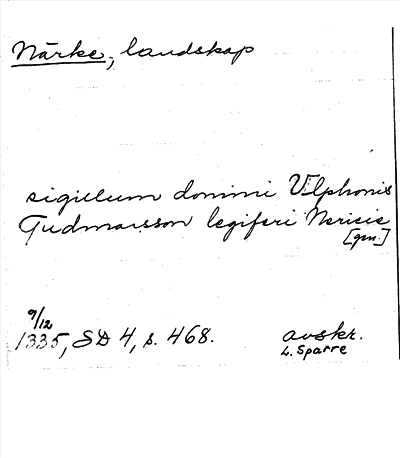 Närke, landskap
sigillum domini Vlphonis
Gudmarsson legiferi Nericie
[gm.]
9/12
1335, SD 4, s. 468.
avskr.
L. Sparre